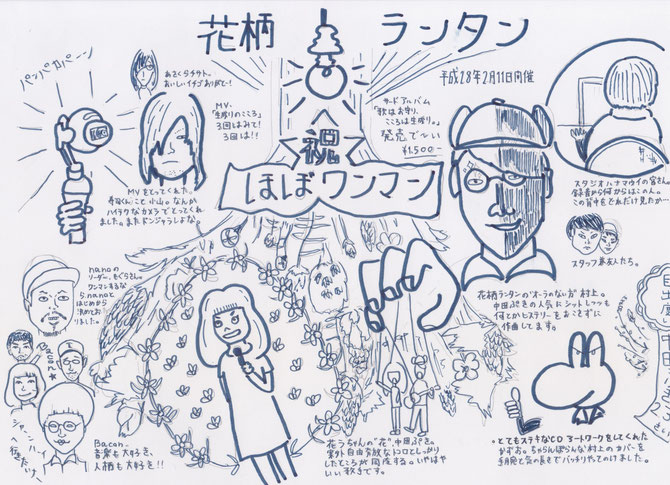 花柄 ランタン
パンパカパーン
あさくらチサト。
おいしいイチゴありがとー！
MV・
「生焼りのこころ」
3回はみて！
3回は！！
サードアルバム
「歌はお守り、
こころは生焼り。」
発売で〜い
¥1,500-
平成28年2月11日開催
へ
祝
ほぼワンマン
MVをとってくれた。
寿司くんこと小山くんなんか
ハイテクなカメラでとってくれ
ました。またドンジャラしよな。
スタジオハナマウイの宮さん
録音から何からはこのん。
この背中をどれだけ見たか…
スタッフ兼友人たち。
nanoの
リーダー。もぐらさん。
ワンマンするなら、nanoと
はじめから
決めており
ました。
Bacon★
Bacon.
音楽も大好き、
人柄も大好き！！
花柄ランタンの"オーラのない方"村上。
中田ぷきの人気にシットしつつも
何とかヒステリーをおこさずに
作曲してます。
花うちゃんの"花"、中田ぷき。
案外自由奔放なトコとしっかり
したところが同居する。いやはや
いい歌声です。
・とてもステキなCDアートワークをしてくれた
かずお。ちゃらんぽらんな村上のカバーを
手際と気の長さでバッチリやってのけました。